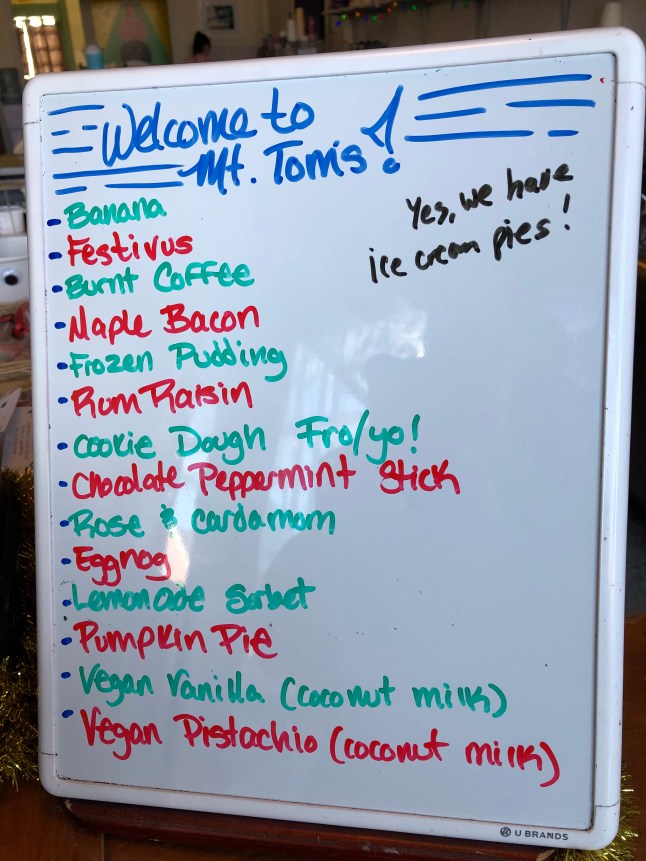 Welcome to
Mt. Tom's!
Yes, we have
ice cream pies!
- Banana
- Festivus
- Burnt Coffee
- Maple Bacon
- Frozen Pudding
- Rum Raisin
- Cookie Dough Fro/yo!
- Chocolate Peppermint Stick
- Rose & Cardamom
- Eggnog
- Lemonade Sorbet
- Pumpkin Pie
- Vegan Vanilla (coconut milk)
- Vegan Pistachio (coconut milk)
U BRANDS